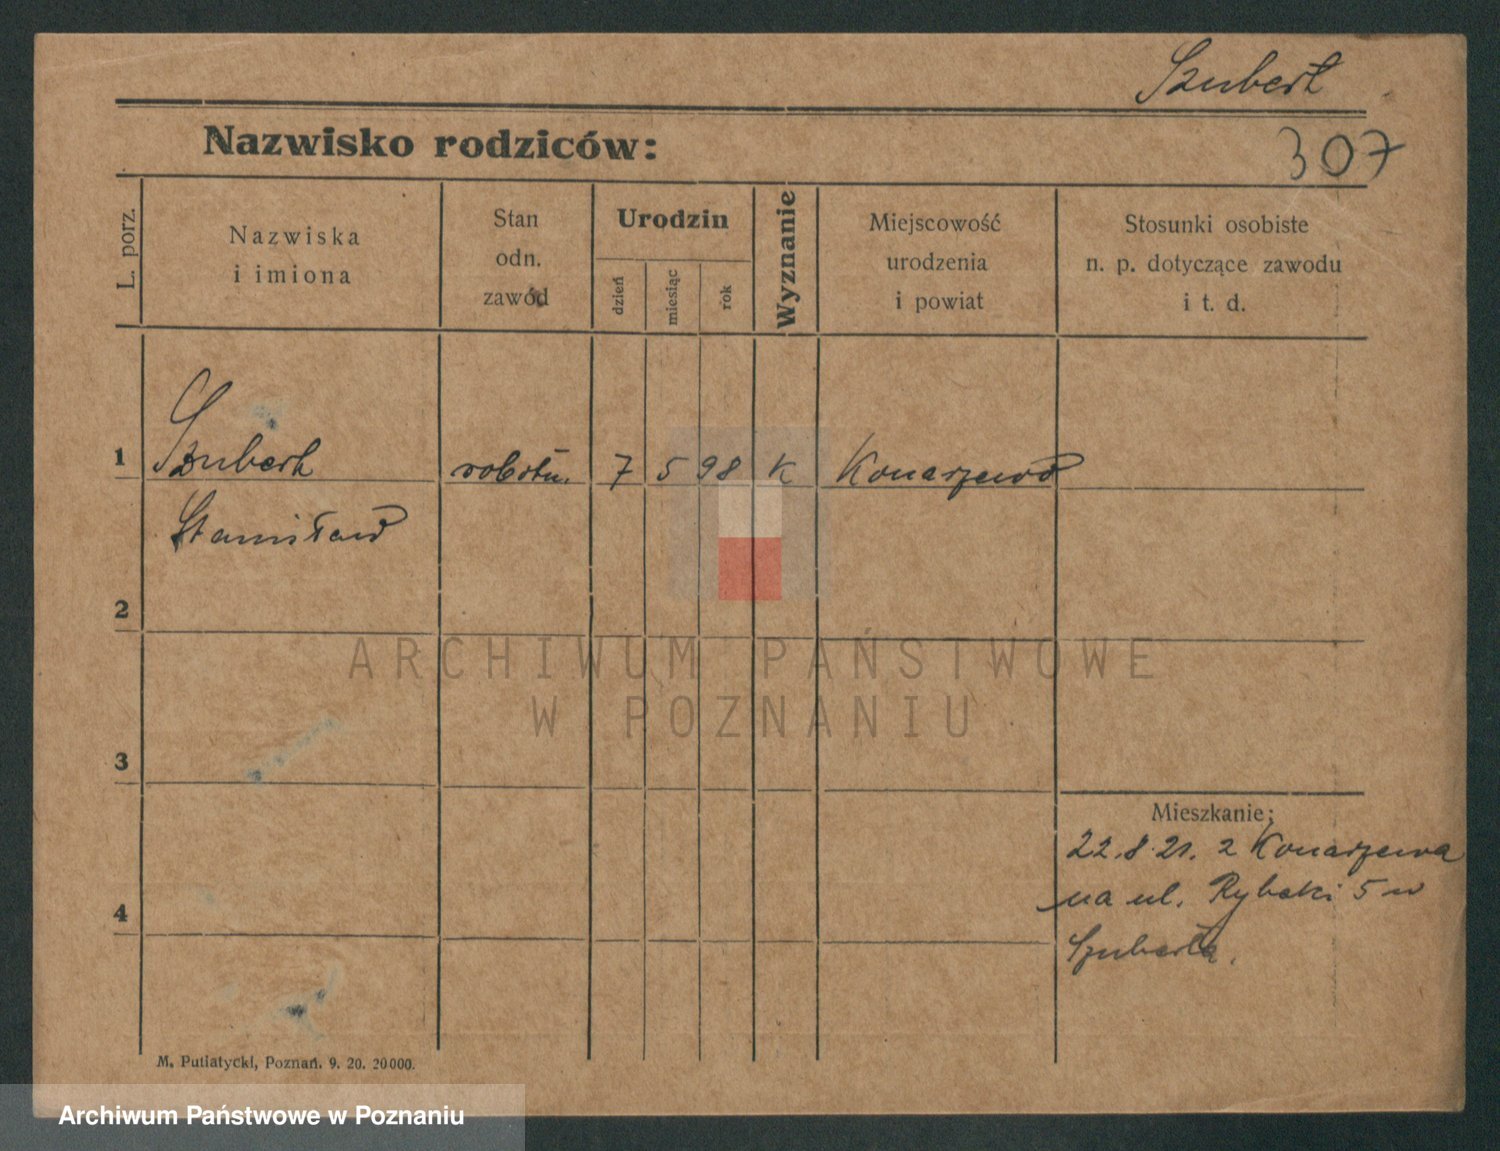 Szubert
Nazwisko rodziców:
307
L. porz.
Nazwiska
i imiona
Stan
odn.
zawód
Urodzin
dzień
miesiąc
rok
Wyznanie
Miejscowość
urodzenia
i powiat
Stosunki osobiste
n. p. dotyczące zawodu
i t. d.
1
Szubert
robotn. 7 5 98 K Konarzewo
Stanisław
2
ARCHIWUM PAŃSTWOWE
W POZNANIU
3
Mieszkanie:
22.8.21. z Konarzewa
na ul. Rybaki 5 u
4
Szuberta.
M. Putiatycki, Poznań. 9. 20. 20000.
Archiwum Państwowe w Poznaniu